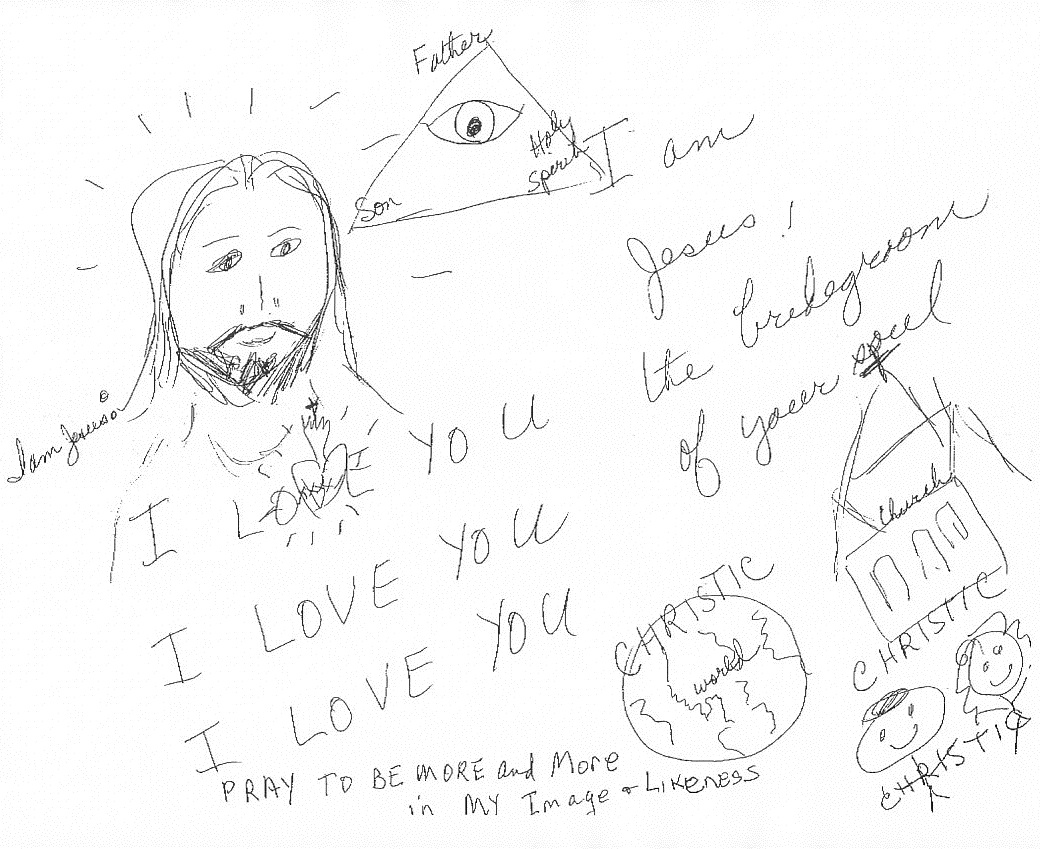 Father
Holy
Spirit
Son
I am
Jesus!
the bridegroom
of your soul
I am Jesus
Church
I LOVE YOU
I LOVE YOU
I LOVE YOU
CHRISTIC
world
CHRISTIC
CHRISTIC
PRAY TO BE MORE and More
in MY Image & LIKENESS